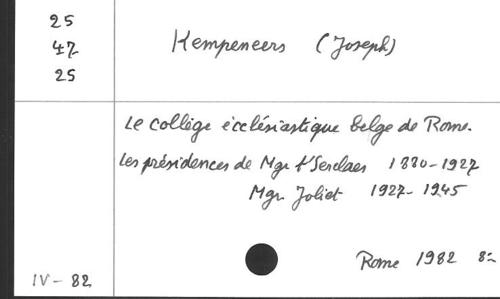 25
47
25
Kempeneers (Joseph)
Le collège ècclésiastique belge de Rome.
Les présidences de Mgr t'Serclaes 1880-1927
Mgr Joliet 1927-1945
Rome 1982 8°
IV - 82